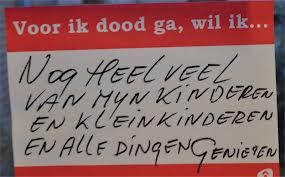 Voor ik dood ga, wil ik...
NOG HEEL VEEL
VAN MYN KINDEREN
EN KLEINKINDEREN
EN ALLE DINGEN GENIETEN